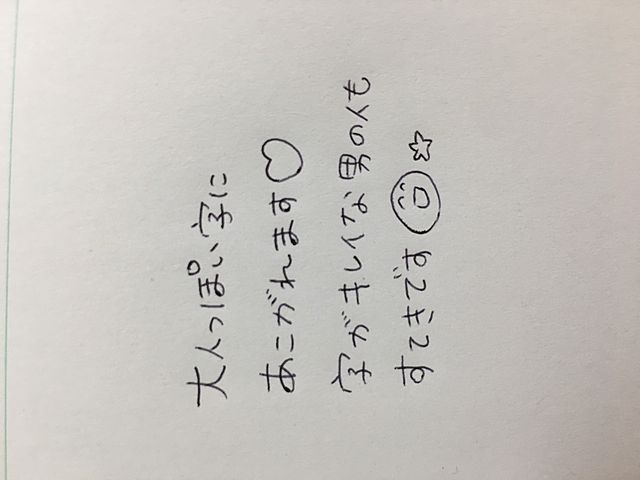 大人っぽい字に
あこがれます♡
字がキレイな男の人も
すてきです☺☆